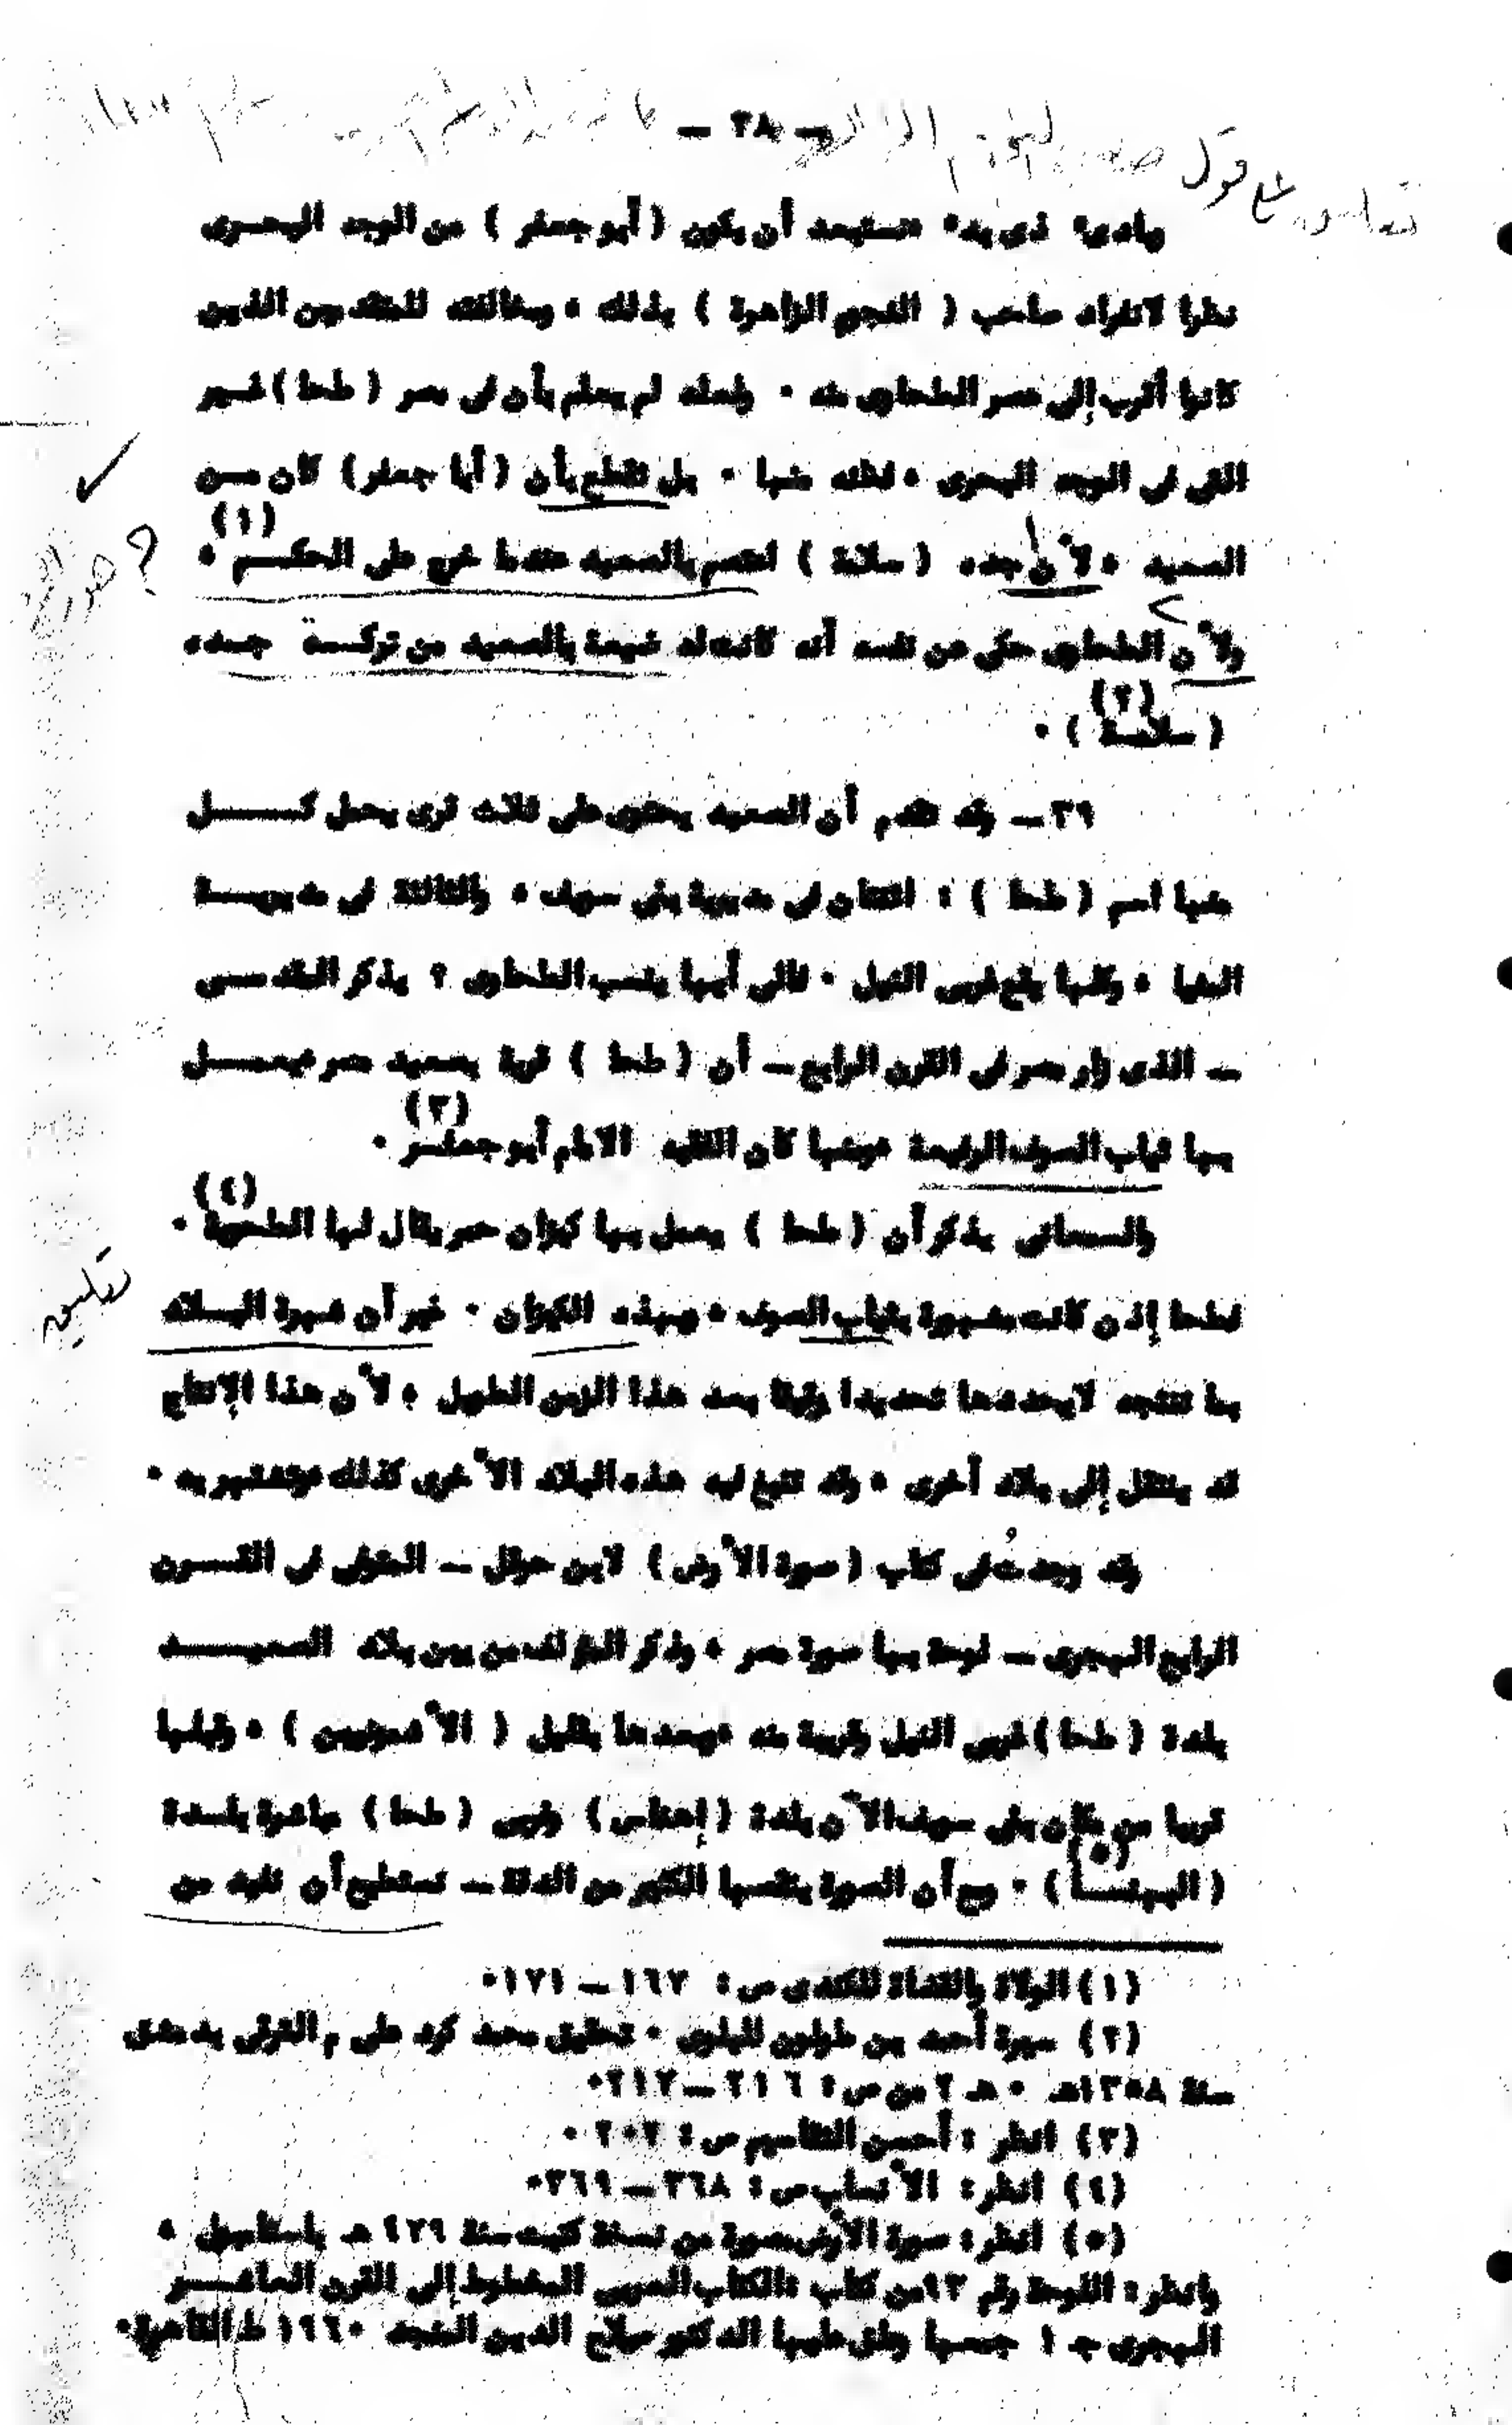 — ٣٨ —
وبادئ ذى بدء نستبعد أن يكون ( أبو جعفر ) من الوجه البحـرى
نظرا لانفراد صاحب ( النجوم الزاهرة ) بذلك ، ومخالفته للمتقدمين الذين
كانوا أقرب إلى عصر الطحاوى منه . ولعله لم يعلم بأن فى مصر ( طحا ) غـير
التى فى الوجه البحرى ، فظنه منها . بل نقطع بأن ( أبا جعفر ) كان مـن
الصعيد ، لأن جده ( سلامة ) اعتصم بالصعيد عندما خرج على الحكـم (١) .
ولأن الطحاوى حكى عن نفسه أنه كانت له ضيعة بالصعيد من تركـة جـده
( سلامـة ) (٢) .
٣٩ — وقد تقدم أن الصعيد يحتوى على ثلاث قرى يحمل كـــل
منها اسم ( طحا ) : اثنتان فى مديرية بنى سويف ، والثالثة فى مديريـــة
المنيا ، وكلها يقع غربى النيل . فالى أيها ينسب الطحاوى ؟ يذكر المقدسـى
— الذى زار مصر فى القرن الرابع — أن ( طحا ) قرية بصعيد مصر يعمــل
بها ثياب الصوف الرفيعة ومنها كان الفقيه الامام أبو جعفـر (٣) .
والسمعانى يذكر أن ( طحا ) يعمل بها كيزان حمر يقال لها الطحوية (٤) .
فطحا إذن كانت مشهورة بثياب الصوف ، وبهذه الكيزان . غير أن شهرة البـلاد
بما تنتجه لا يحددها تحديدا وثيقا بعد هذا الزمن الطويل ، لأن هذا الإنتاج
قد ينتقل إلى بلاد أخرى ، وقد تنبغ فيه هذه البلاد الأخرى كذلك وتشتهر به .
وقد وجدتُ فى كتاب ( صورة الأرض ) لابن حوقل — المتوفى فى القــرن
الرابع الهجرى — لوحة بها صورة مصر ، وذكر المؤلف من بين بلاد الصعيـــد
بلدة ( طحا ) غربى النيل وقريبة منه وبعدها بقليل ( الأشمونيين ) ، وقبلها
قريبا من مكان بنى سويف الآن بلدة ( إهناس ) وغربى ( طحا ) مباشرة بلـدة
( البهنسـا ) (٥) . ومع أن الصورة ينقصها الكثير من الدقة — نستطيع أن نفيد من
(١) الولاة والقضاة للكندى ص : ١٦٧ — ١٧١ .
(٢) سيرة أحمد بن طولون للبلوى . تحقيق محمد كرد على م الترقى بدمشق
سنة ١٣٥٨هـ . هـ ٢ من ص : ٢١٦ — ٢١٧ .
(٣) انظر : أحسن التقاسيم ص : ٢٠٢ .
(٤) انظر : الأنساب ص : ٣٦٨ — ٣٦٩ .
(٥) انظر : صورة الأرض مصورة من نسخة كتبت سنة ٤٢٩ هـ باستانبول ،
وانظر : اللوحة رقم ٩٣ من كتاب : الكتاب العربى المخطوط إلى القرن العاشـــر
الهجرى جـ ١ جمعها وعلق عليها الدكتور صلاح الدين المنجد ١٩٦٠ ط القاهرة .
تعليق